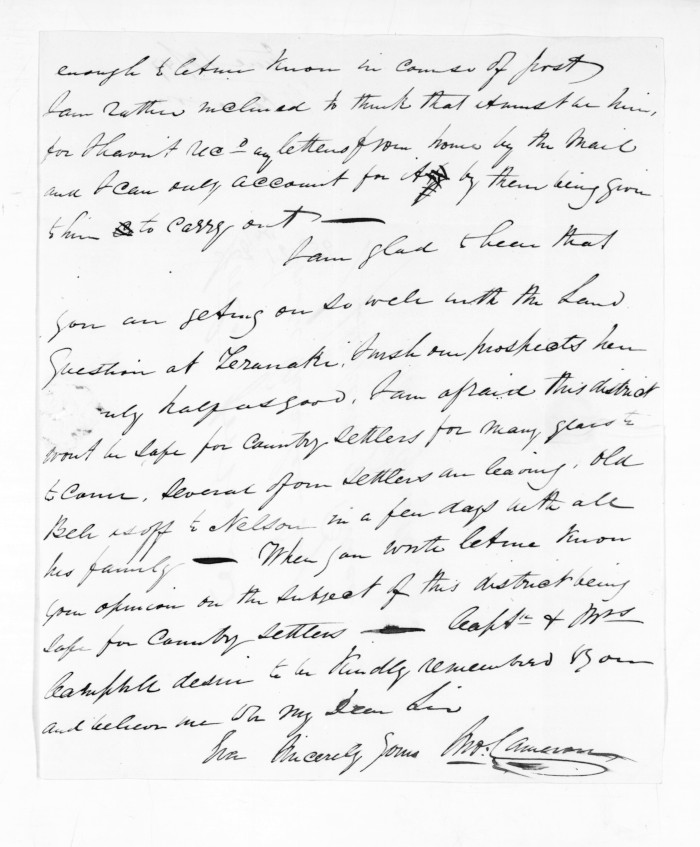 enough to let me know in course of post
I am rather inclined to think that it must be him,
for I havn't recd. any letters from home by the Mail
and I can only account for it by them being given
to him to carry out —
I am glad to hear that
you are geting on so well with the Land
Question at Teranaki, I wish our prospects here
only half as good, I am afraid this district
wont be safe for Country settlers for many years to
to come, several of our settlers are leaving, Old
Bell is off to Nelson in a few days with all
his family — When you write let me know
your opinion on the subject of this district being
safe for Country settlers — Captn. & Mrs
Campbell desire to be Kindly remembered to you
and believe me to be My Dear Sir
Ever Sincerely Yours Jno. Cameron